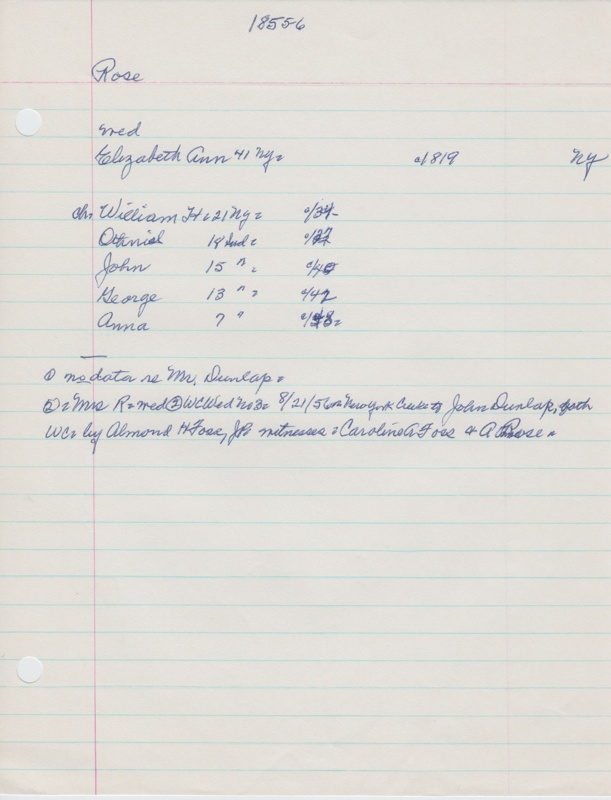 1855-6
Rose
wed
Elizabeth Ann 41 Ny= c/1819 Ny
chn William H= 21 Ny= c/34
Othniel 18 Ind= c/37
John 15 " = c/40
George 13 " = c/42
Anna 7 " c/48=
① no data re Mr. Dunlap=
②= Mrs R= wed ② WC Wed No 3= 8/21/56= New York Creek to John Dunlap, both
WC= by Almond H Foss, JP= witnesses = Caroline A Foss & A Rose=